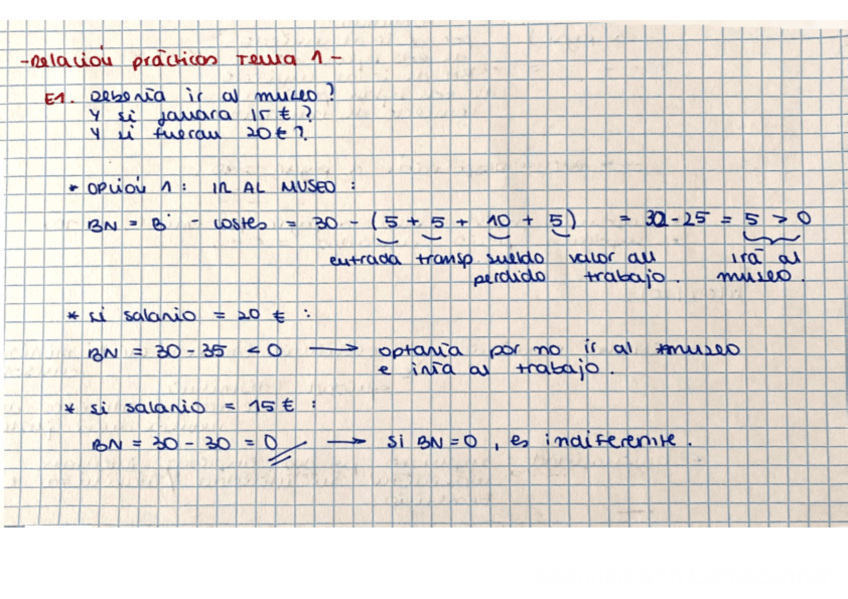 -Relación prácticas Tema 1-
E1. Debería ir al museo?
Y si ganara 15 €?
Y si fueran 20 €?
* OPCIÓN 1: IR AL MUSEO:
BN = B' - costes = 30 - (5 + 5 + 10 + 5) = 30 - 25 = 5 > 0
entrada transp. sueldo valor au irá al
perdido trabajo. museo.
* si salario = 20 €:
BN = 30 - 35 < 0 → optaría por no ir al museo
e iría al trabajo.
* si salario = 15 €:
BN = 30 - 30 = 0 → si BN = 0, es indiferente.